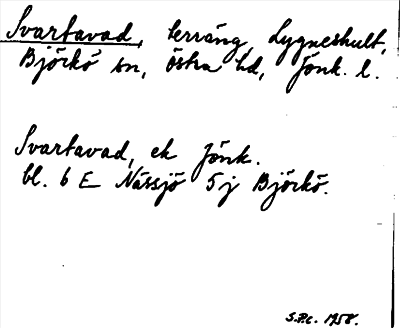 Svartavad, terräng, Lygneshult,
Björkö sn, Östra hd, Jönk. l.
Svartavad, ek Jönk.
bl. 6 E Nässjö 5 j Björkö.
S.P.c. 1958.